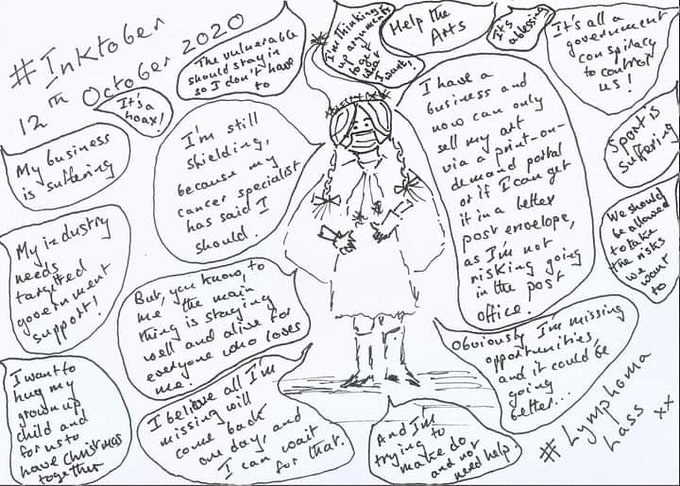 #Inktober
12th October 2020
The vulnerable
should stay in
so I don't have
to
I'm thinking
up arguments
to get
what
I want!
Help the
Arts
It's
It's all a
government
conspiracy
to control
us!
It's a
hoax!
My business
is suffering
I'm still
shielding,
because my
cancer specialist
has said I
should.
I have a
business and
now can only
sell my art
via a print-on-
demand portal
or if I can get
it in a letter
post envelope,
as I'm not
risking going
in the post
office.
Sport is
suffering
We should
be allowed
to take
the risks
we
want
to
My industry
needs
targetted
government
support!
But, you know, to
me the main
thing is staying
well and alive for
everyone who loves
me!
Obviously I'm missing
opportunities
and it could be
going
better...
I want to
hug my
grown up
child and
for us to
have Christmas
together
I believe all I'm
missing will
come back
one day, and
I can wait
for that.
And I'm
trying to
make do
and not
need help.
#Lymphoma
Lass xx